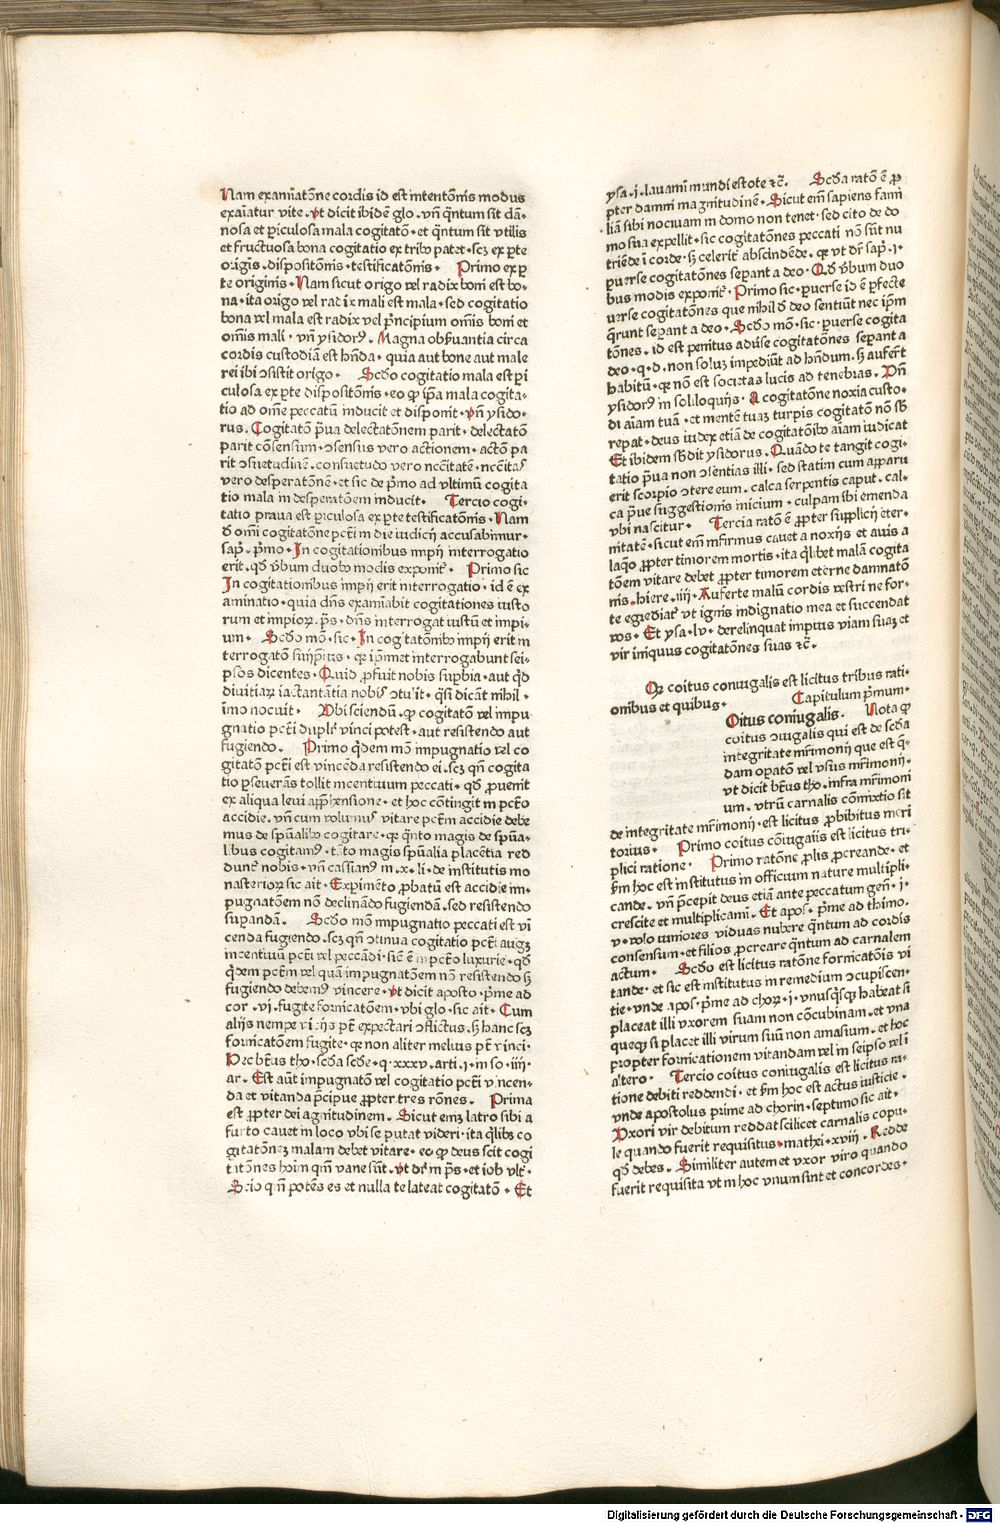 Nam examīatōne cordis id est intentōnis modus
exaīatur vite. vt dicit ibidē glo. vñ q̄ntum sit dā-
nosa et ꝑiculosa mala cogitatō. et q̄ntum sit vtilis
et fructuosa bona cogitatio ex tribꝰ patet. scꝫ ex ꝑte
originis. dispositōnis. testificatōnis. Primo ex ꝑ
te originis. Nam sicut origo vel radix boni est bo-
na. ita origo vel radix mali est mala. sed cogitatio
bona vel mala est radix vel p̄ncipium om̄is boni et
om̄is mali. vñ ysidorꝰ. Magna obs̄uantia circa
cordis custodiā est hn̄da. quia aut bone aut male
rei ibi ↄsistit origo. Scd̄o cogitatio mala est ꝑi
culosa ex ꝑte dispositōnis. eo ꝙ ip̄a mala cogita-
tio ad om̄e peccatū inducit et disponit. vñ ysido-
rus. Cogitatō p̄ua delectatōnem parit. delectatō
parit cōsensum. ↄsensus vero actionem. actō pa
rit ↄsuetudinē. consuetudo vero nc̄citatē. nc̄citas
vero desperatōnē. et sic de p̄mo ad vltimū cogita
tio mala in desperatōem inducit. Tercio cogi-
tatio praua est ꝑiculosa ex ꝑte testificatōnis. Nam
đ om̄i cogitatōne pctī in die iudicij accusabimur.
sap̄. p̄mo. In cogitationibus impij interrogatio
erit. qđ v̄bum duobꝰ modis exponit᷑. Primo sic
In cogitationibus impij erit interrogatio. id ē ex
aminatio. quia dn̄s examīabit cogitationes iusto
rum et impioꝝ. p̄s. dn̄s interrogat iustū et impi-
um. Scd̄o mō. sic. In cogitatōnibꝰ impij erit in
terrogatō suijp̄ius. qꝛ ip̄imet interrogabunt sei-
psos dicentes. Quid ꝓfuit nobis suꝑbia. aut qđ
diuitiaꝝ iactantia nobis ↄtu’it. q̄si dicāt nihil.
īmo nocuit. Vbi sciendū. ꝙ cogitatō vel impu
gnatio pctī duplr̄ vinci potest. aut resistendo aut
fugiendo. Primo q̄dem mō impugnatio vel co
gitatō pctī est vincēda resistendo ei. scꝫ qn̄ cogita
tio ꝑseuerās tollit incentiuum peccati. qđ ꝓuenit
ex aliqua leui app̄hensione. et hoc cōtingit in pctō
accidie. vñ cum volumus vitare pctm̄ accidie debe
mus de sp̄ualibꝰ cogitare. qꝛ q̄nto magis de sp̄ua-
libus cogitamꝰ. tāto magis sp̄ualia placētia red
dunt᷑ nobis. vñ cassianꝰ in. x. li. de institutis mo
nasterioꝝ sic ait. Experimēto ꝓbatū est accidie im-
pugnatōem nō declinādo fugiendā. sed resistendo
suꝑandā. Scd̄o mō impugnatio peccati est vi
cenda fugiendo. scꝫ qn̄ ↄtinua cogitatio pctī augꝫ
incentiuū pctī vel peccādi. sic̄ ē in pctō luxurie. qđ
q̄dem pctm̄ vel quā impugnatōem nō resistendo ꝫ
fugiendo debemꝰ vincere. vt dicit apostolꝰ. p̄me ad
cor. vi. fugite fornicatōem. vbi glo. sic ait. Cum
alijs nempe vicijs pt̄ expectari ↄflictus. ꝫ hanc scꝫ
fornicatōem fugite. qꝛ non aliter melius pt̄ vinci.
Hec bt̄us tho. scd̄a scd̄e. q. xxxv. arti. i. in so. iiij.
ar. Est aūt impugnatō vel cogitatio pctī vincen-
da et vitanda p̄cipue ꝓpter tres rōnes. Prima
est ꝓpter dei agnitudinem. Sicut em̄ latro sibi a
furto cauet in loco vbi se putat videri. ita q̄libꝫ co
gitatōnē malam debet vitare. eo ꝙ deus scit cogi
tatōnes hoīm qm̄ vane sūt. vt dr̄ in p̄s. et iob vlt᷑.
Scio q̄ m̄ potēs es et nulla te lateat cogitatō. Et
ysa. i. lauamī mundi estote ⁊c̄. Scd̄a ratō ē ꝓ
pter damni magnitudinē. Sicut em̄ sapiens fami
liā sibi nociuam in domo non tenet. sed cito de do
mo sua expellit. sic cogitatōnes peccati nō sūt nu
triēde ī corde. ꝫ celerit᷑ abscindēde. qꝛ vt dr̄ sap̄. i.
ꝑuerse cogitatōnes seꝑant a deo. Qđ v̄bum duo
bus modis exponit᷑. Primo sic. ꝑuerse id ē ꝑfecte
v̄rse cogitatōnes que nihil đ deo sentiūt nec ip̄m
q̄runt seꝑant a deo. Scd̄o mō. sic. ꝑuerse cogita
tōnes. id est penitus adū̄se cogitatōnes seꝑant a
deo. q. d. non soluꝫ impediūt ad hn̄dum. ꝫ auferūt
habitū. qꝛ nō est societas lucis ad tenebras. Vñ
ysidorꝰ in soliloquijs. A cogitatōne noxia custo-
di aīam tuā. et mentē tuaꝫ turpis cogitatō nō sb̄
repat. deus iudex etiā de cogitatōibꝰ aīam iudicat
Et ibidem sb̄dit ysidorus. Quādo te tangit cogi-
tatio p̄ua non ↄsentias illi. sed statim cum apparu
erit scorpio ↄtere eum. calca serpentis caput. cal-
ca p̄ue suggestionis inicium. culpam ibi emenda
vbi nascitur. Tercia ratō ē ꝓpter supplicij eter-
nitatē. sicut em̄ infirmus cauet a noxijs et auis a
laqꝰ ꝓpter timorem mortis. ita q̄libet malā cogita
tōem vitare debet ꝓpter timorem eterne damnatō
nis. hiere. iiij. Auferte malū cordis vestri ne for-
te egrediat᷑ vt ignis indignatio mea et succendat
vos. Et ysa. lv. derelinquat impius viam suaꝫ et
vir iniquus cogitatōnes suas ⁊c̄.
Qꝫ coitus coniugalis est licitus tribus rati-
onibus et quibus. Capitulum p̄mum.
Oitus coniugalis. Nota ꝙ
coitus ↄiugalis qui est de scd̄a
integritate mr̄imonij que est q̄-
dam oꝑatō vel vsus mr̄imonij.
vt dicit bt̄us tho. infra mr̄imoni
um. vtrū carnalis cōmixtio sit
de integritate mr̄imonij. est licitus ꝓhibitus meri
torius. Primo coitus cōiugalis est licitus tri-
plici ratione. Primo ratōne ꝓlis ꝓcreande. et
ẜm hoc est institutus in officium nature multipli-
cande. vñ p̄cepit deus etiā ante peccatum gen̄. i.
crescite et multiplicamī. Et apos̄. p̄me ad thimo.
v. volo iuniores viduas nubere q̄ntum ad cordis
consensum. et filios ꝓcreare q̄ntum ad carnalem
actum. Scd̄o est licitus ratōne fornicatōis vi
tande. et sic est institutus in remedium ↄcupiscen-
tie. vnde apos̄. p̄me ad choꝝ. i. vnusq̄sqꝫ habeat si
placeat illi vxorem suam non cōcubinam. et vna
queqꝫ si placet illi virum suū non amasium. et hoc
propter fornicationem vitandam vel in seipso vel ī
altero. Tercio coitus coniugalis est licitus ra-
tione debiti reddendi. et ẜm hoc est actus iusticie.
vnde apostolus prime ad chorin. septimo sic ait.
Vxori vir debitum reddat scilicet carnalis copu-
le quando fuerit requisitus. mathei. xviij. Redde
qđ debes. Similiter autem et vxor viro quando
fuerit requisita vt in hoc vnum sint et concordes.
Digitalisierung gefördert durch die Deutsche Forschungsgemeinschaft - DFG